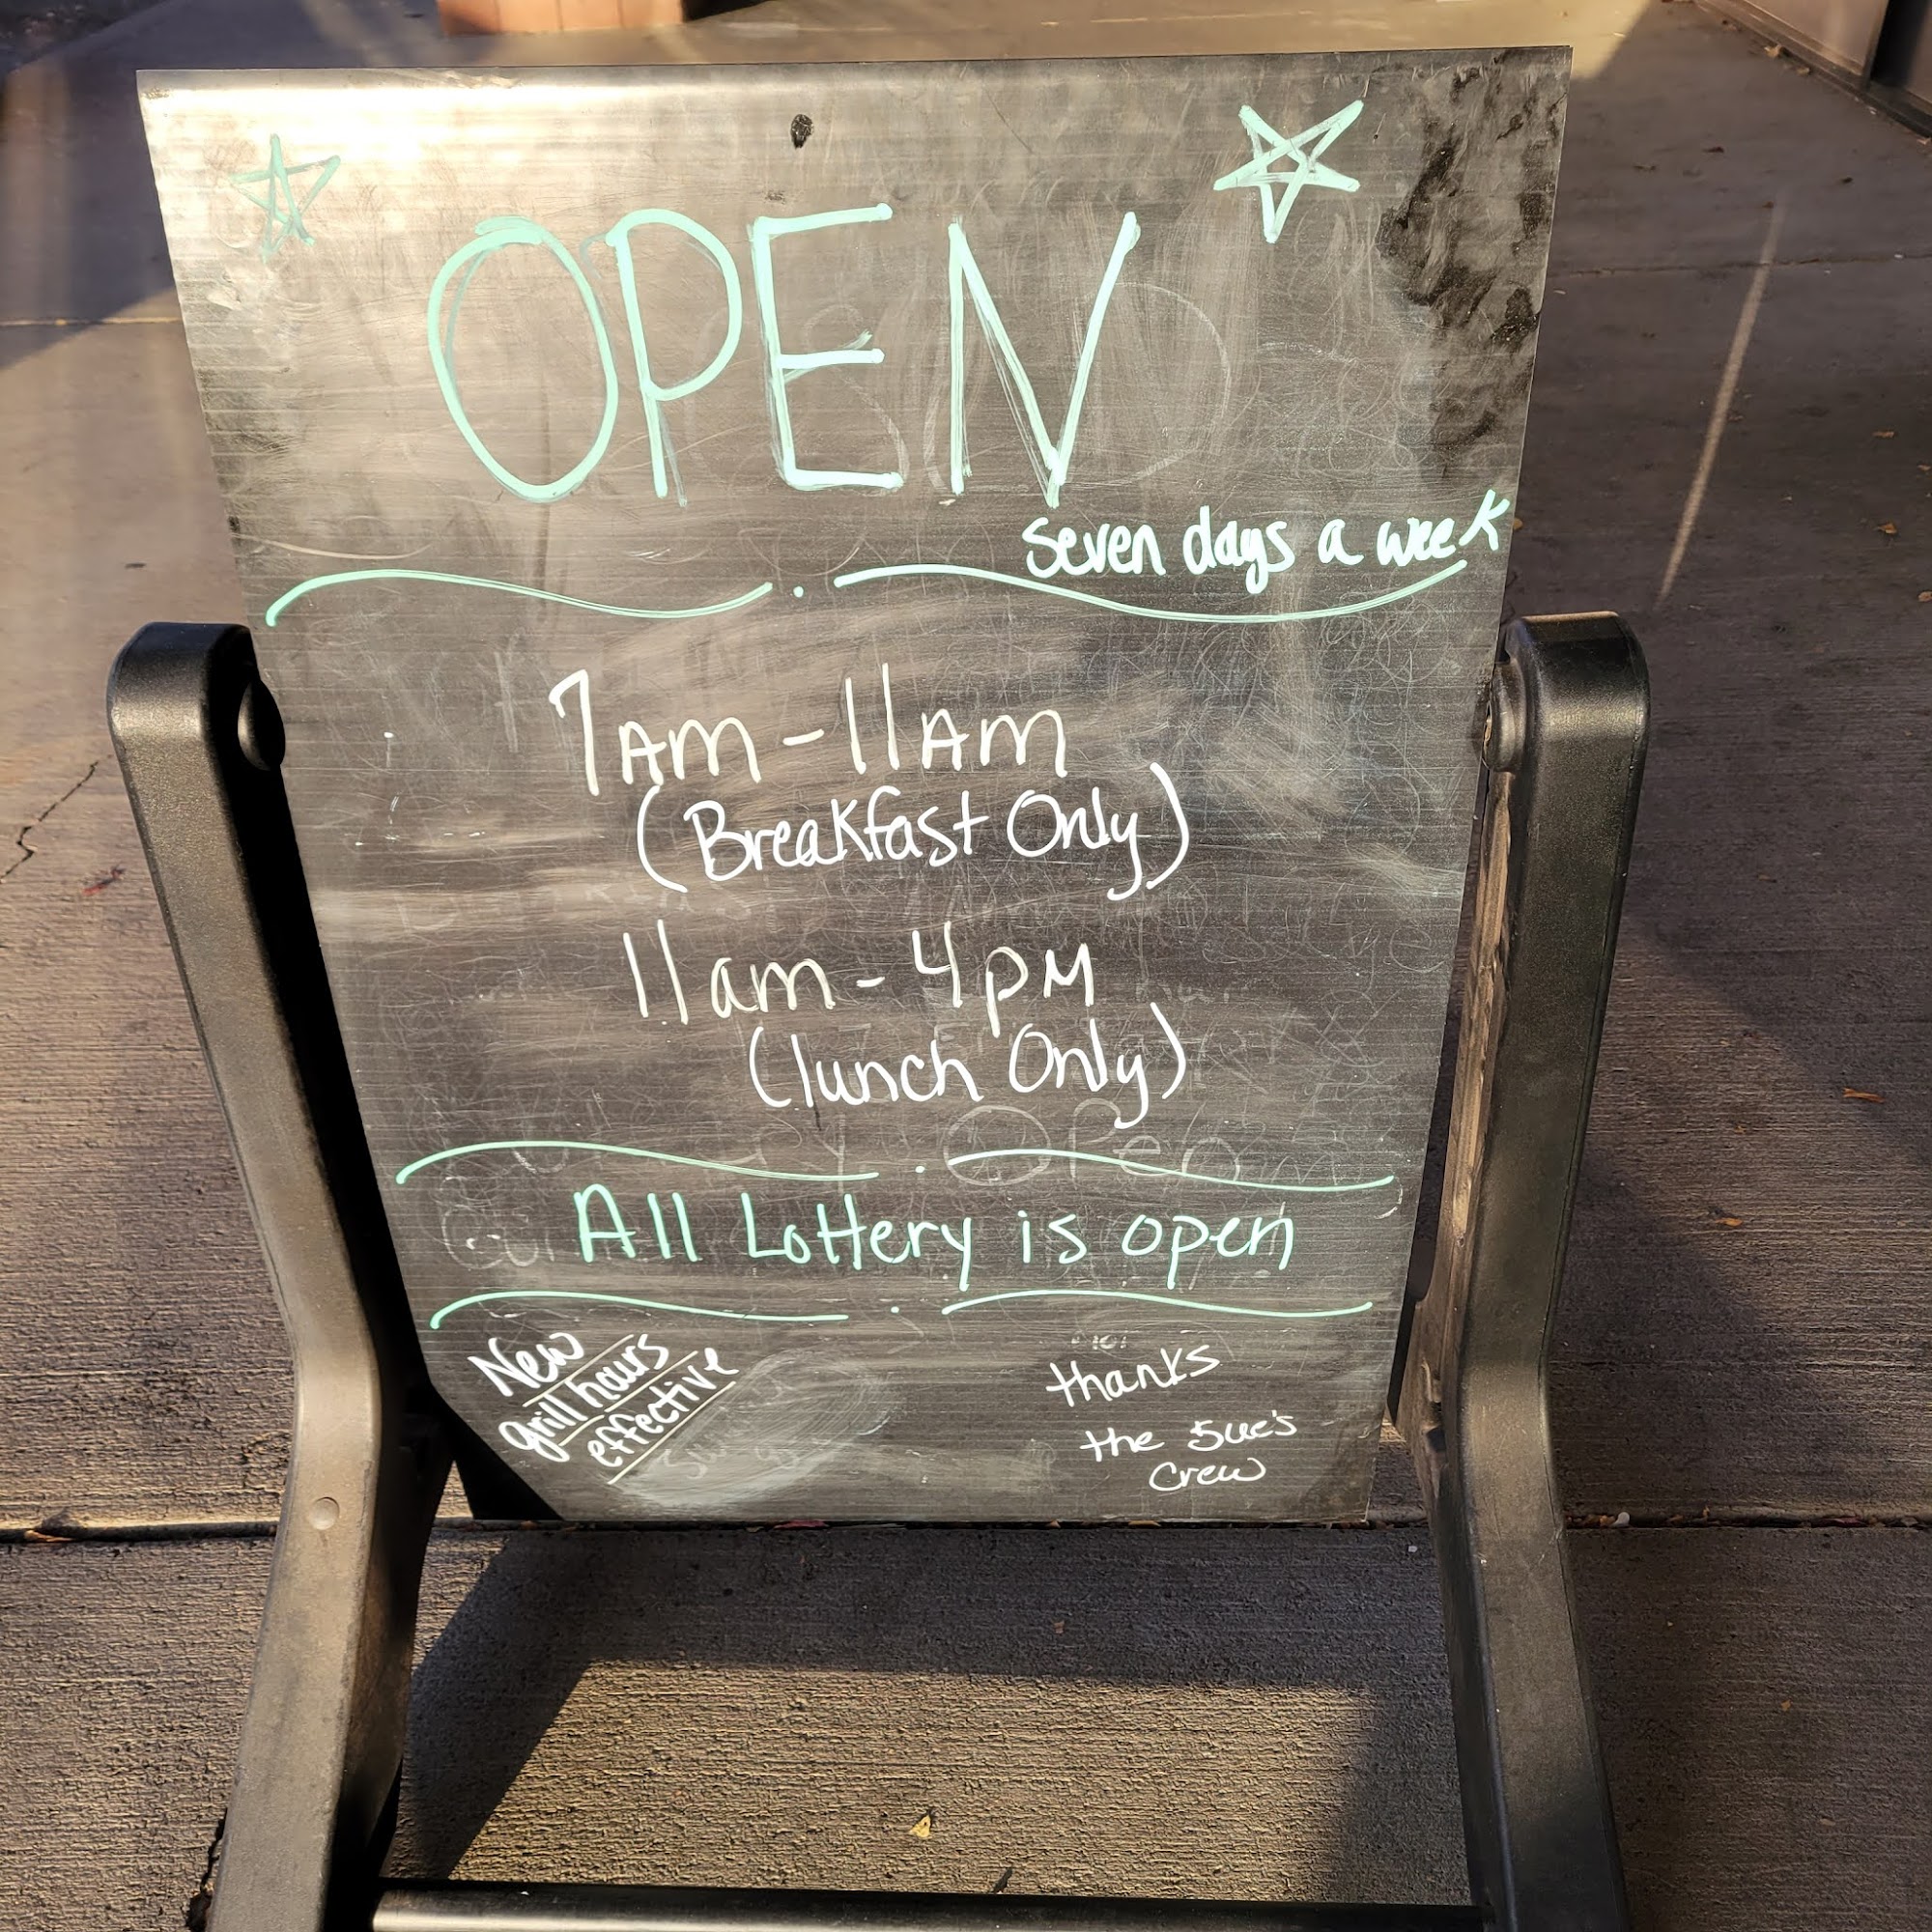 OPEN
seven days a week
7AM - 11AM
(Breakfast Only)
11am - 4pM
(lunch Only)
All Lottery is open
New
grill hours
effective
thanks
the 5ue's
Crew